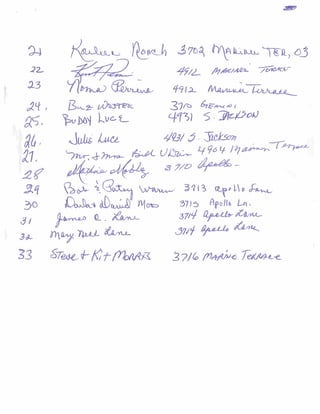 21 Ranch 3702 Marine Ter, 03
22 4912 Mariner
23 Norma Perrene 4912 Marine Terrace
24. Buz 3710 Gemini
25. Buddy Luce 4931 S. Jackson
26. Julie Luce 4931 S. Jackson
27. Mr. & Mrs 4904
28 3710 Apollo
29 Bob & Patsy Warn 3713 Apollo Lane
30 Darla & David Moos 3715 Apollo Ln.
31 James C. Lane 3714 Apollo Lane
32 Mary Nell Lane 3714 Apollo Lane
33 Steve & Kit Morris 3716 Marine Terrace